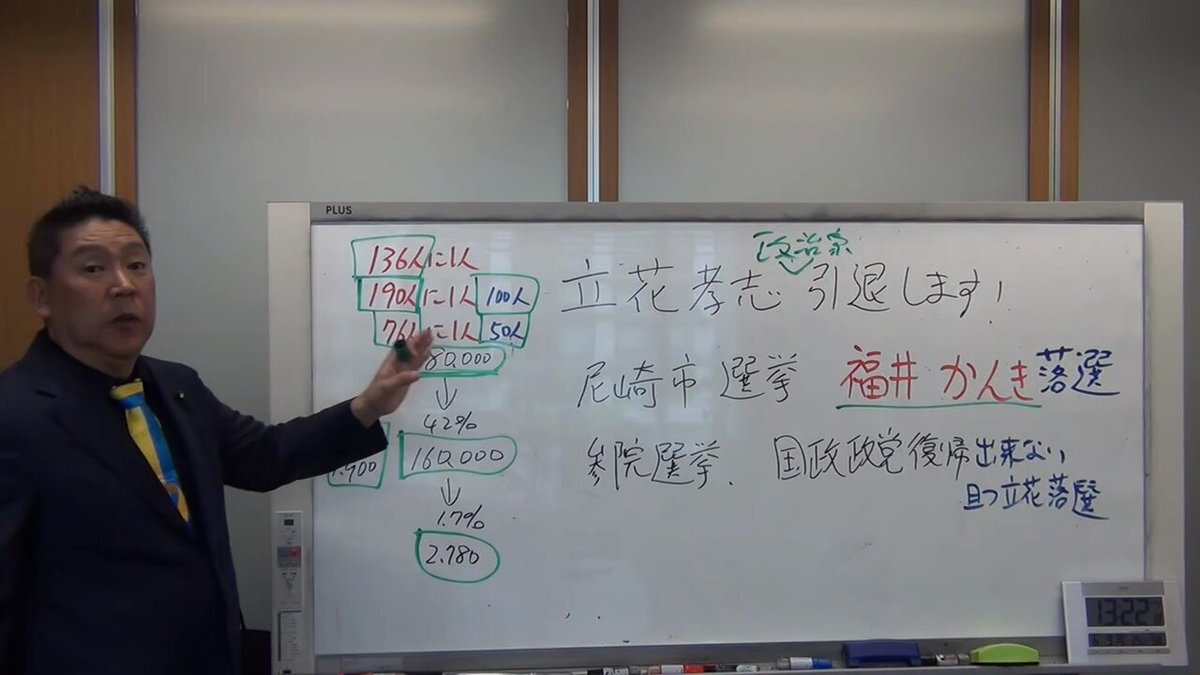 PLUS
136人に1人
190人に1人 100人
76人に1人 50人
80,000
↓
42%
1.900 160,000
↓
1.7%
2.780
政治家
立花孝志 引退します!
尼崎市 選挙 福井 かんき 落選
参院選挙. 国政政党復帰出来ない
且つ立花落選
13:22